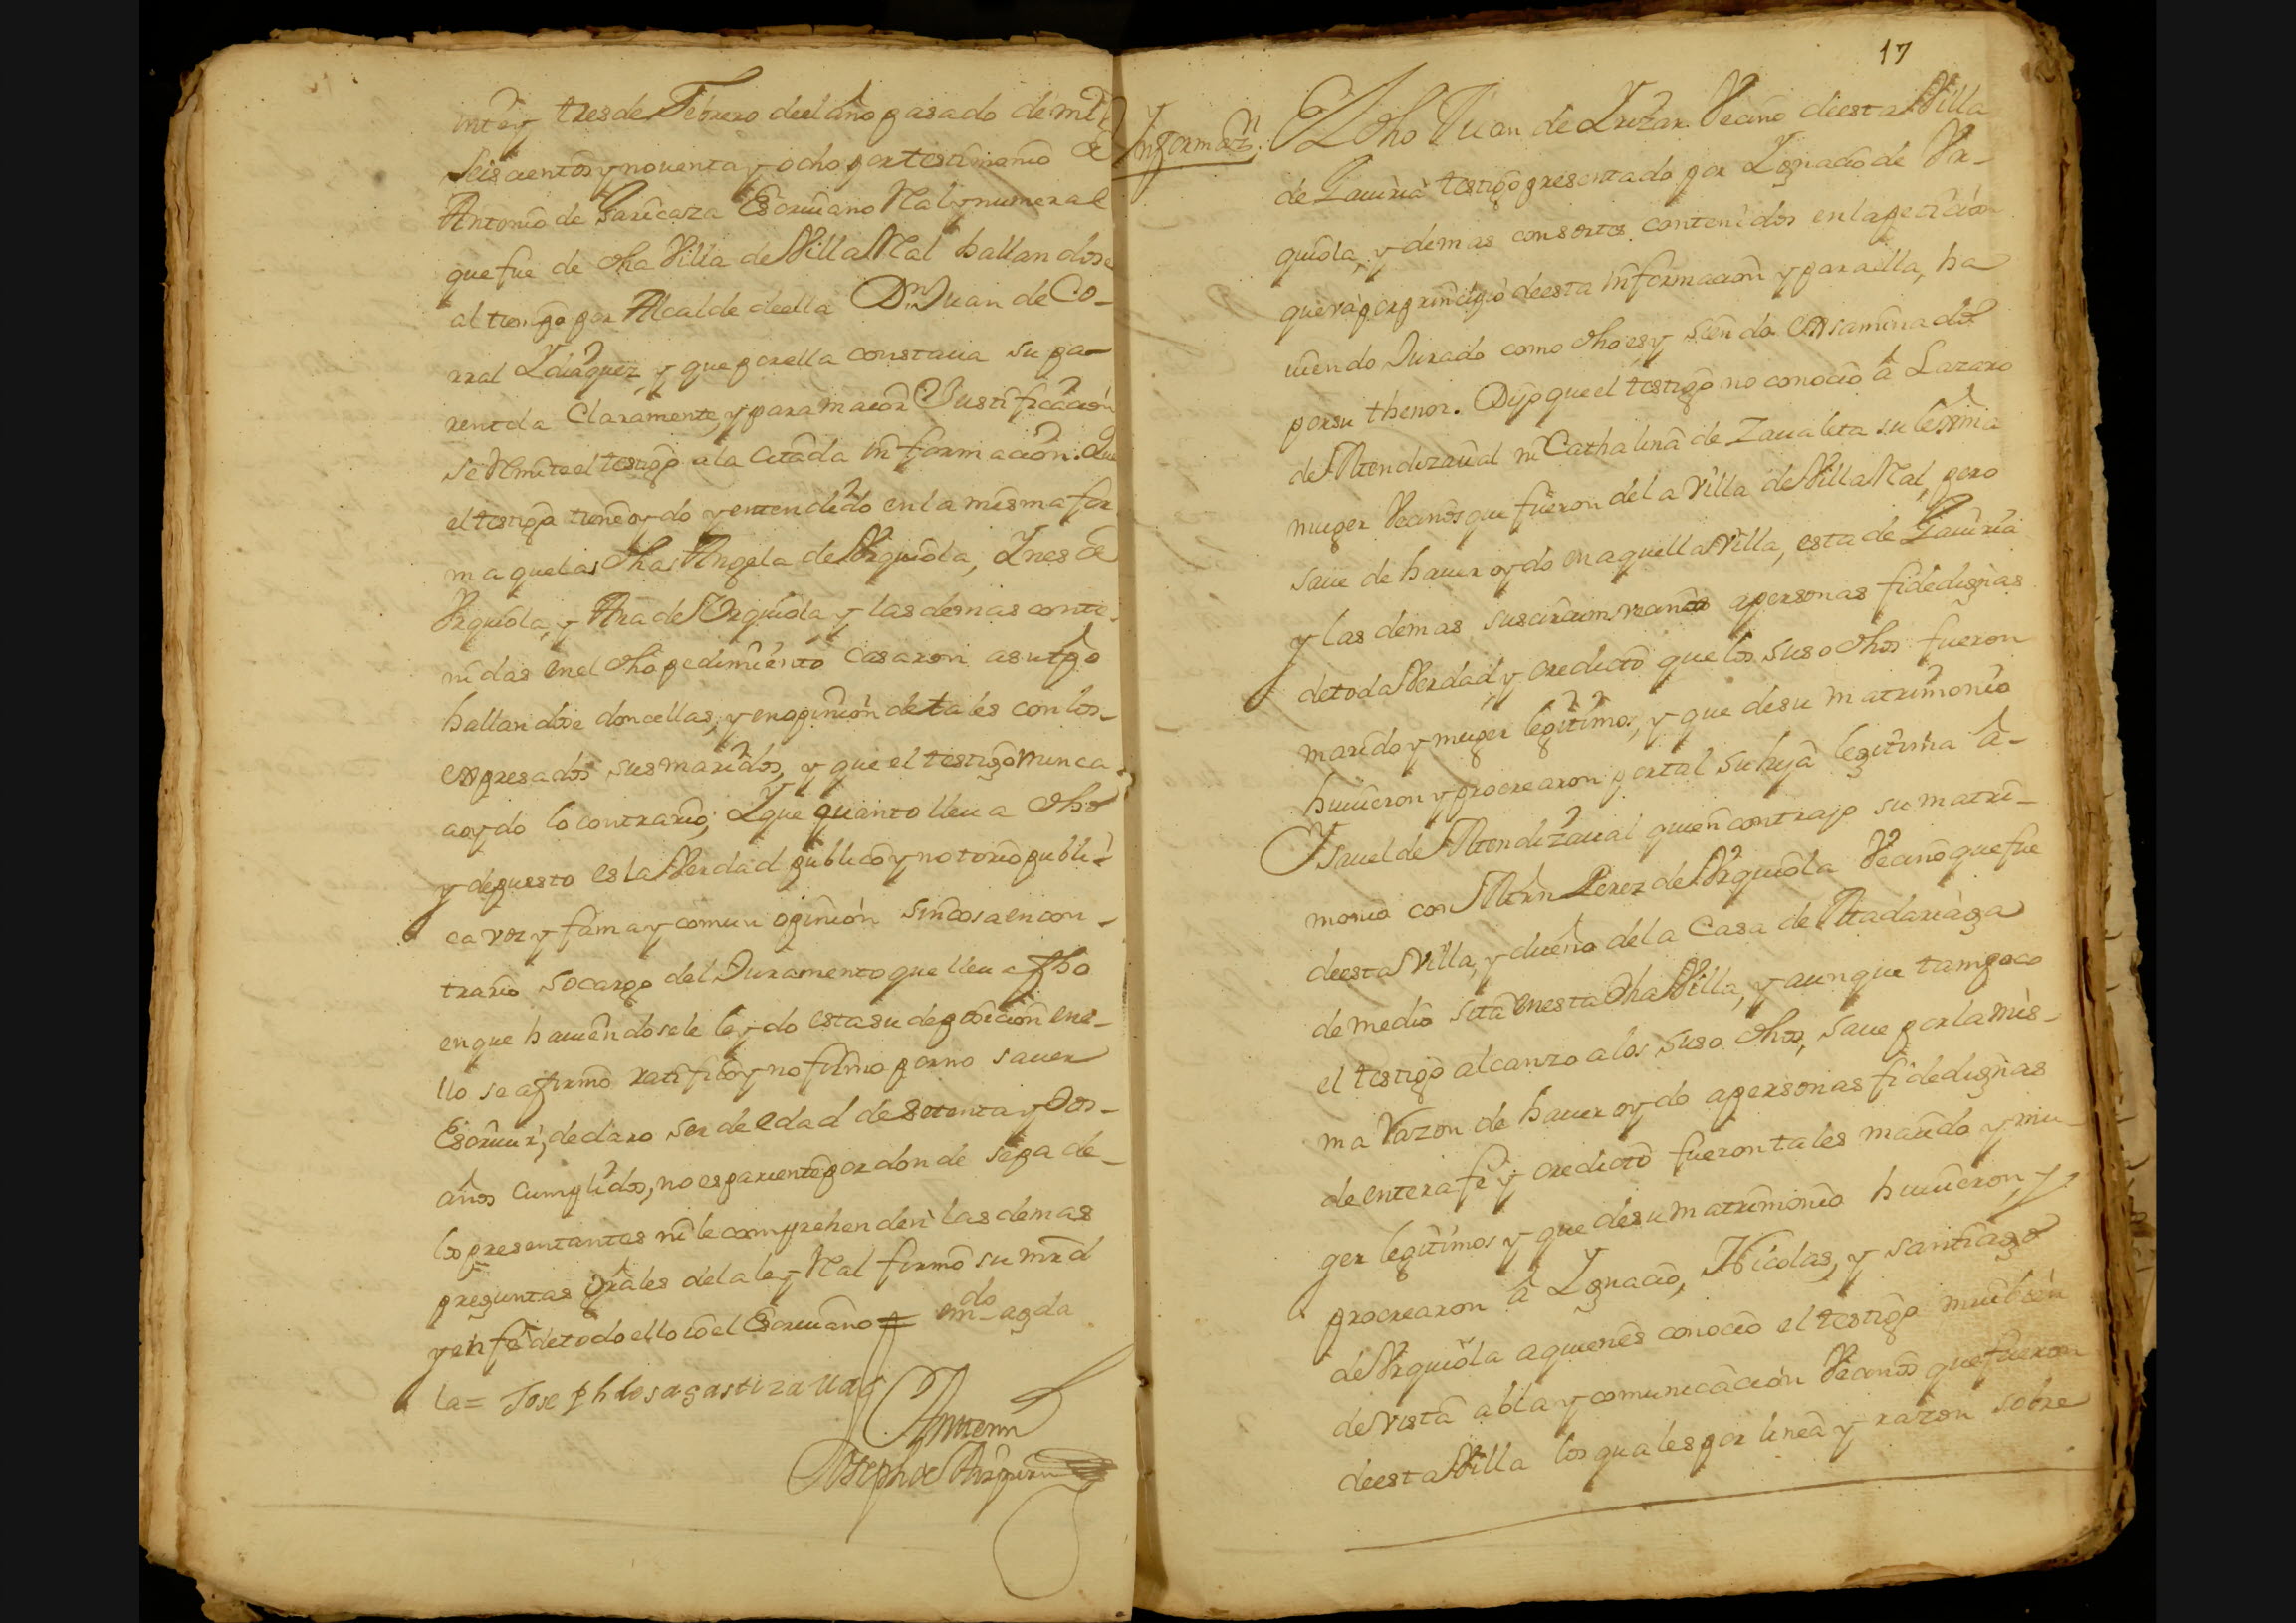 inte y tres de Febrero de el año pasado de mil
seiscientos y noventa y ocho por testimonio de
Antonio de Garicaza Escriuano Real y numeral
que fue de dha Villa de Villa Real hallandose
al tiempo por Alcalde de ella Dn Juan de Co-
rral Ydiaquez, y que por ella constaua su pa-
rentela Claramente, y para maior Justificacion
se Remite el testigo a la Citada Informacion. Que
el testigo tiene oydo y entendido en la misma for
ma que las dhas Angela de Vrquiola, Ynes de
Vrquiola, y Ana de Vrquiola y las demas conte-
nidas en el dho pedimiento casaron a su tpo
hallandose doncellas, y en opinion de tales con los-
expresados sus maridos, y que el testigo nunca
a oydo lo contrario; Y que quanto lleua dho
y depuesto es la Verdad publico y notorio publi-
ca voz y fama y comun opinion sin cosa en con-
trario so cargo del Juramento que lleua fho
en que hauiendosele leydo esta su deposicion en e-
llo se afirmo ratifico y no firmo por no sauer
Escriuir, declaro ser de edad de Setenta y Dos-
años Cumplidos, no es pariente por donde sepa de-
los presentantes ni le comprehenden las demas
preguntas Grales de la ley Real firmo su mrd
y en fe de todo ello Yo el Escriuano = emdo agda
la = Joseph de sagastizaual
Ante mi
Joseph de
17
Ynformazn
El dho Juan de Lrizar Vecino de esta Villa
de Gauiria testigo presentado por Ygnacio de Vr-
quiola, y demas consortes contenidos en la peticion
que va por principio de esta Informacion y para ella, ha
uiendo Jurado como dho es y siendo exsaminado
por su thenor. Dijo que el testigo no conocio â Lazaro
de Mendizaual ni Cathalina de Zaualeta su lexma
muger Vecinos que fueron de la Villa de Villa Real, pero
saue de hauer oydo en aquella Villa, esta de Gauiria
y las demas sus circumvecinas a personas fidedignas
de toda Verdad y credicto que los suso dhos fueron
marido y muger legitimos, y que de su matrimonio
huuieron y procrearon por tal su hija legitima â-
Ysauel de Mendizaual quien contrajo su matri-
monio con Mrn Perez de Vrquiola Vecino que fue
de esta Villa, y dueño de la Casa de Madariaga
de medio sita en esta dha Villa, y aunque tampoco
el testigo alcanzo a los suso dhos, saue por la mis-
ma Razon de hauer oydo a personas fidedignas
de entera fe y credicto fueron tales marido y mu-
ger legitimos y que de su matrimonio huuieron, y
procrearon â Ygnacio, Nicolas, y santiago
de Vrquiola a quienes conocio el testigo mui bien
de vista abla y comunicacion Vecinos que fueron
de esta Villa los quales por linea y razon sobre